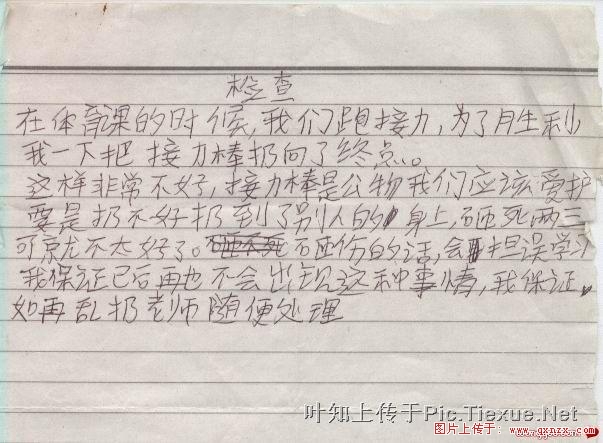 检查
在体育课的时候,我们跑接力,为了胜利
我一下把接力棒扔向了终点。
这样非常不好,接力棒是公物我们应该爱护
要是扔不好扔到了别人的身上,砸死两三
可就不太好了。砸伤的话,会担误学习
我保证已后再也不会出现这种事情,我保证。
如再乱扔老师随便处理
叶知上传于Pic.Tiexue.Net
图片上传于: www.gxnzx.com